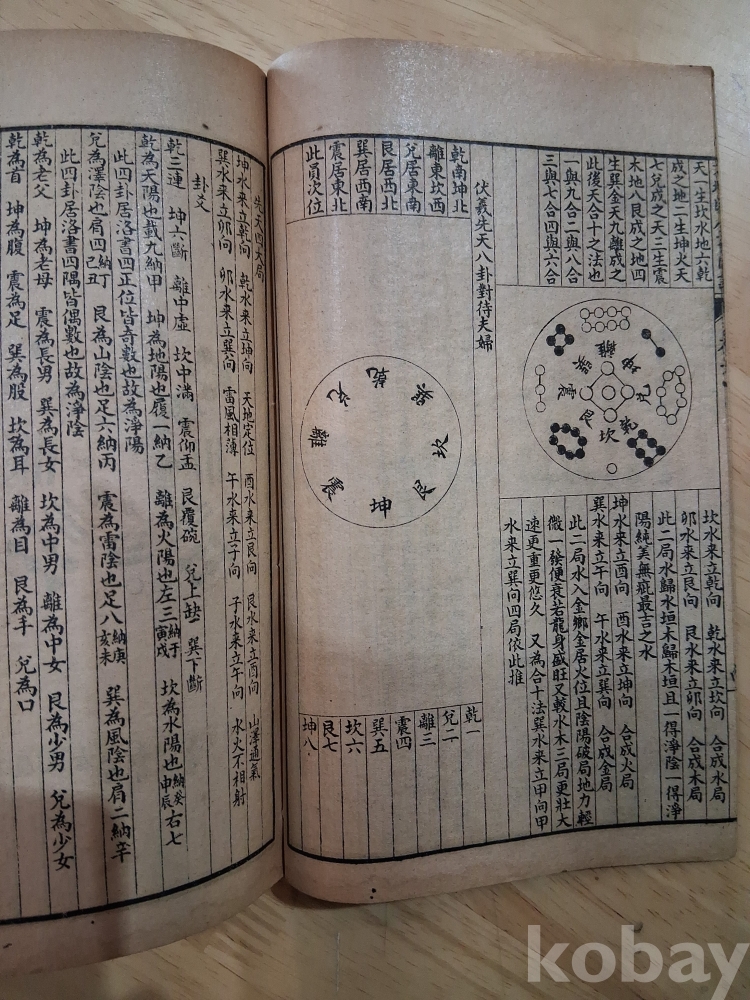 天一生坎水地六乾
成之地二生坤火天
七兌成之天三生震
木地八艮成之地四
生巽金天九離成之
此後天合十之法也
一與九合二與八合
三與七合四與六合
離
坤
兌
乾
坎
艮
震
巽
坎水来立乾向 乾水来立坎向 合成水局
卯水来立艮向 艮水来立卯向 合成木局
此二局水歸水垣木歸木垣且一得淨陰一得淨
陽純美無疵最吉之水
坤水来立酉向 酉水来立坤向 合成火局
巽水来立午向 午水来立巽向 合成金局
此二局水入金鄉金居火位且陰陽破局地力輕
微一發便衰若龍身盛旺又較水木三局更壯大
速更重更悠久 又為合十法巽水来立甲向甲
水来立巽向四局依此推
伏羲先天八卦對待夫婦
乾南坤北
離東坎西
兌居東南
艮居西北
巽居西南
震居東北
此員次位
乾
巽
坎
艮
坤
震
離
兌
乾一
兌二
離三
震四
巽五
坎六
艮七
坤八
先天四大局
坤水来立乾向 乾水来立坤向 天地定位 酉水来立艮向 艮水来立酉向 山澤通氣
巽水来立卯向 卯水来立巽向 雷風相薄 午水来立子向 子水来立午向 水火不相射
卦爻
乾三連 坤六斷 離中虛 坎中滿 震仰盂 艮覆碗 兌上缺 巽下斷
乾為天陽也載九納甲 坤為地陽也履一納乙 離為火陽也左三納壬寅戌 坎為水陽也納癸申辰右七
此四卦居洛書四正位皆奇數也故為淨陽
兌為澤陰也肩四納丁己丑 艮為山陰也足六納丙 震為雷陰也足八納庚亥未 巽為風陰也肩二納辛
此四卦居洛書四隅皆偶數也故為淨陰
乾為老父 坤為老母 震為長男 巽為長女 坎為中男 離為中女 艮為少男 兌為少女
乾為首 坤為腹 震為足 巽為股 坎為耳 離為目 艮為手 兌為口
kobay